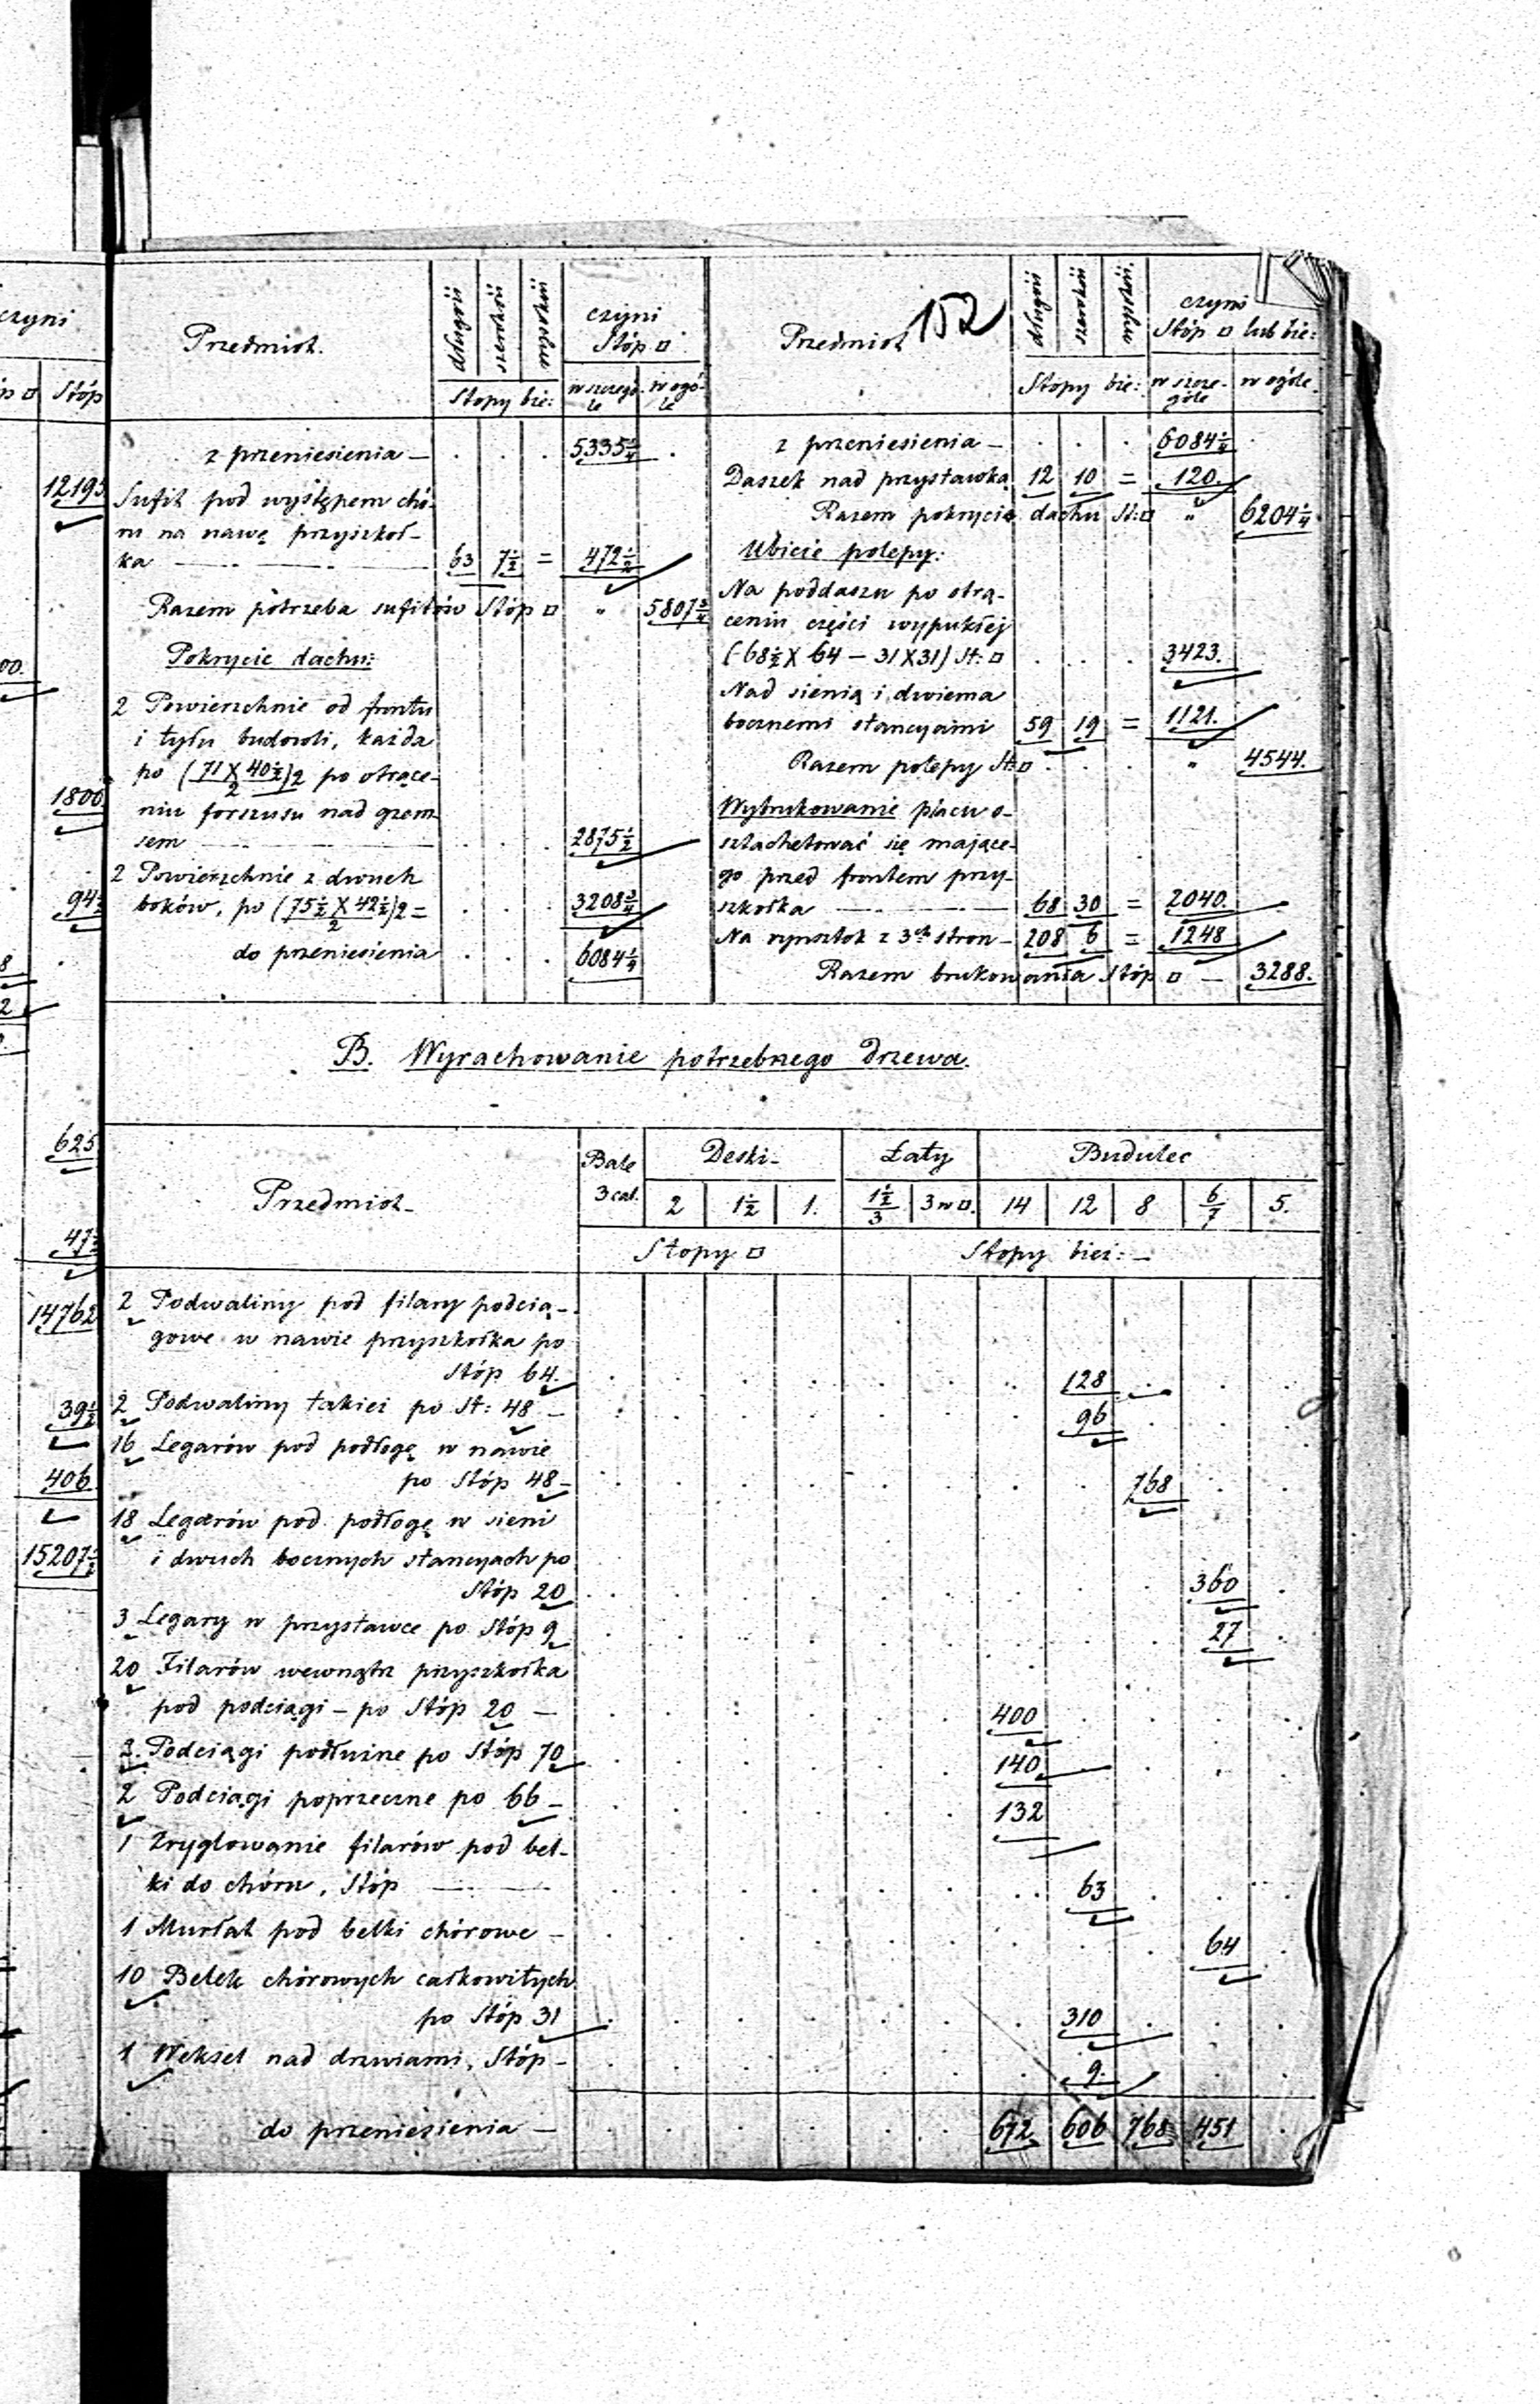 czyni
Stóp
12195
00.
1800.
94½
8
2
625
47½
14762
39½
406.
15207½
152
Przedmiot.
długość
szerokość
wysokość
czyni
Stóp □
Stopy bie:
w szczegó-
le
w ogó-
le
z przeniesienia —
5335¼
Sufit pod występem chó-
ru na nawę przyszkoł-
ka — 63 7½ = 472½
Razem potrzeba sufitów Stóp □ „ 5807¾
Pokrycie dachu:
2 Powierzchnie od frontu
i tyłu budowli, każda
po (71 X 40½/2)2 po otrące-
niu forszusu nad gzem-
sem — 2875½
2 Powierzchnie z dwuch
boków, po (75½ X 42½/2)2 = 3208¾
do przeniesienia 6084¼
Przedmiot
długość
szerokość
wysokość
czyni
Stóp □ lub bie:
Stopy bie:
w szcze-
góle
w ogóle.
z przeniesienia — 6084¼
Daszek nad przystawką 12 10 = 120.
Razem pokrycie dachu St: □ „ 6204¼
Ubicie polepy:
Na poddaszu po otrą-
ceniu części wypukłej
(68½ X 64 — 31 X 31) St: □ 3423.
Nad sienią i dwiema
bocznemi stancyami 59 19 = 1121.
Razem polepy St: □ „ 4544.
Wybrukowanie placu o-
sztachetować się mające-
go przed frontem przy-
szkołka — 68 30 = 2040.
Na rynsztok z 3ch stron — 208 6 = 1248
Razem brukowania Stóp □ — 3288.
B. Wyrachowanie potrzebnego drzewa.
Przedmiot.
Bale
3 cal.
Deski
2 1½ 1.
Łaty
1½/3 3 w □.
Budulec
14 12 8 6/7 5.
Stopy □
Stopy bież: —
2 Podwaliny pod filary podcią-
gowe w nawie przyszkołka po
Stóp 64. 128
2 Podwaliny takież po St: 48 — 96
16 Legarów pod podłogę w nawie
po Stóp 48 — 768
18 Legarów pod podłogę w sieni
i dwuch bocznych stancyach po
Stóp 20 360
3 Legary w przystawce po Stóp 9 27
20 Filarów wewnątrz przyszkołka
pod podciągi — po Stóp 20 — 400
2. Podciągi podłużne po Stóp 70 140
2 Podciągi poprzeczne po 66 — 132
1 Zryglowanie filarów pod bel-
ki do chóru, Stóp — 63
1 Murłat pod belki chórowe — 64
10 Belek chórowych całkowitych
po Stóp 31 310
1 Weksel nad drzwiami, Stóp — 9.
do przeniesienia — 672 606 768 451